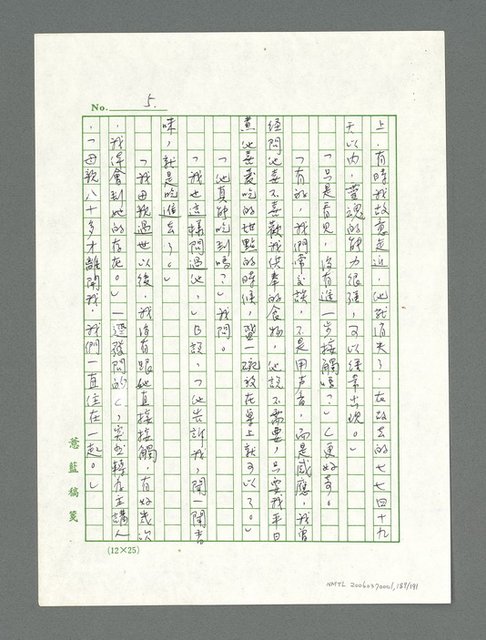 No. 5.
上，有時我故意走近，他就消失了，在故去的七七四十九
天以內，靈魂的能力很強，可以經常出現。」
「只是看見，沒有進一步接觸嗎？」C更好奇。
「有的，我們常交談，不是用声音，而是感應，我曾
經問他喜不喜歡我供奉的食物，他說不需要，只要我平日
煮他喜愛吃的甜點的時候，盛一碗放在桌上就可以了。」
「他真能吃到嗎？」我問。
「我也這樣問過他，」B說，「他告訴我，聞一聞香
味，就是吃進去了。」
「我母親過世以後，我沒有跟她直接接觸，有好幾次
，我得會到她的存在。」一逕發問的C，突然轉為主講人
，「母親八十多才離開我，我們一直住在一起。」
慧藍稿箋
(12×25)
NMTL 20060370001,187/191